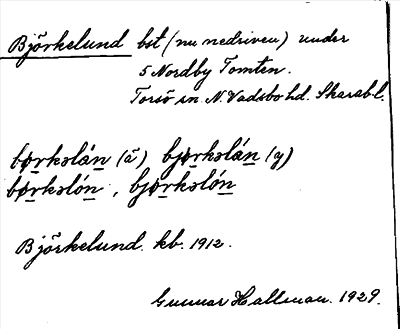 Björkelund bst (nu nedriven) under
5 Nordby Tomten.
Torsö sn N. Vadsbo hd. Skarab.l.
børkslán (ä) bjørkslán (y)
børkslón, bjørkslón
Björkelund. kb. 1912.
Gunnar Hallman. 1929.